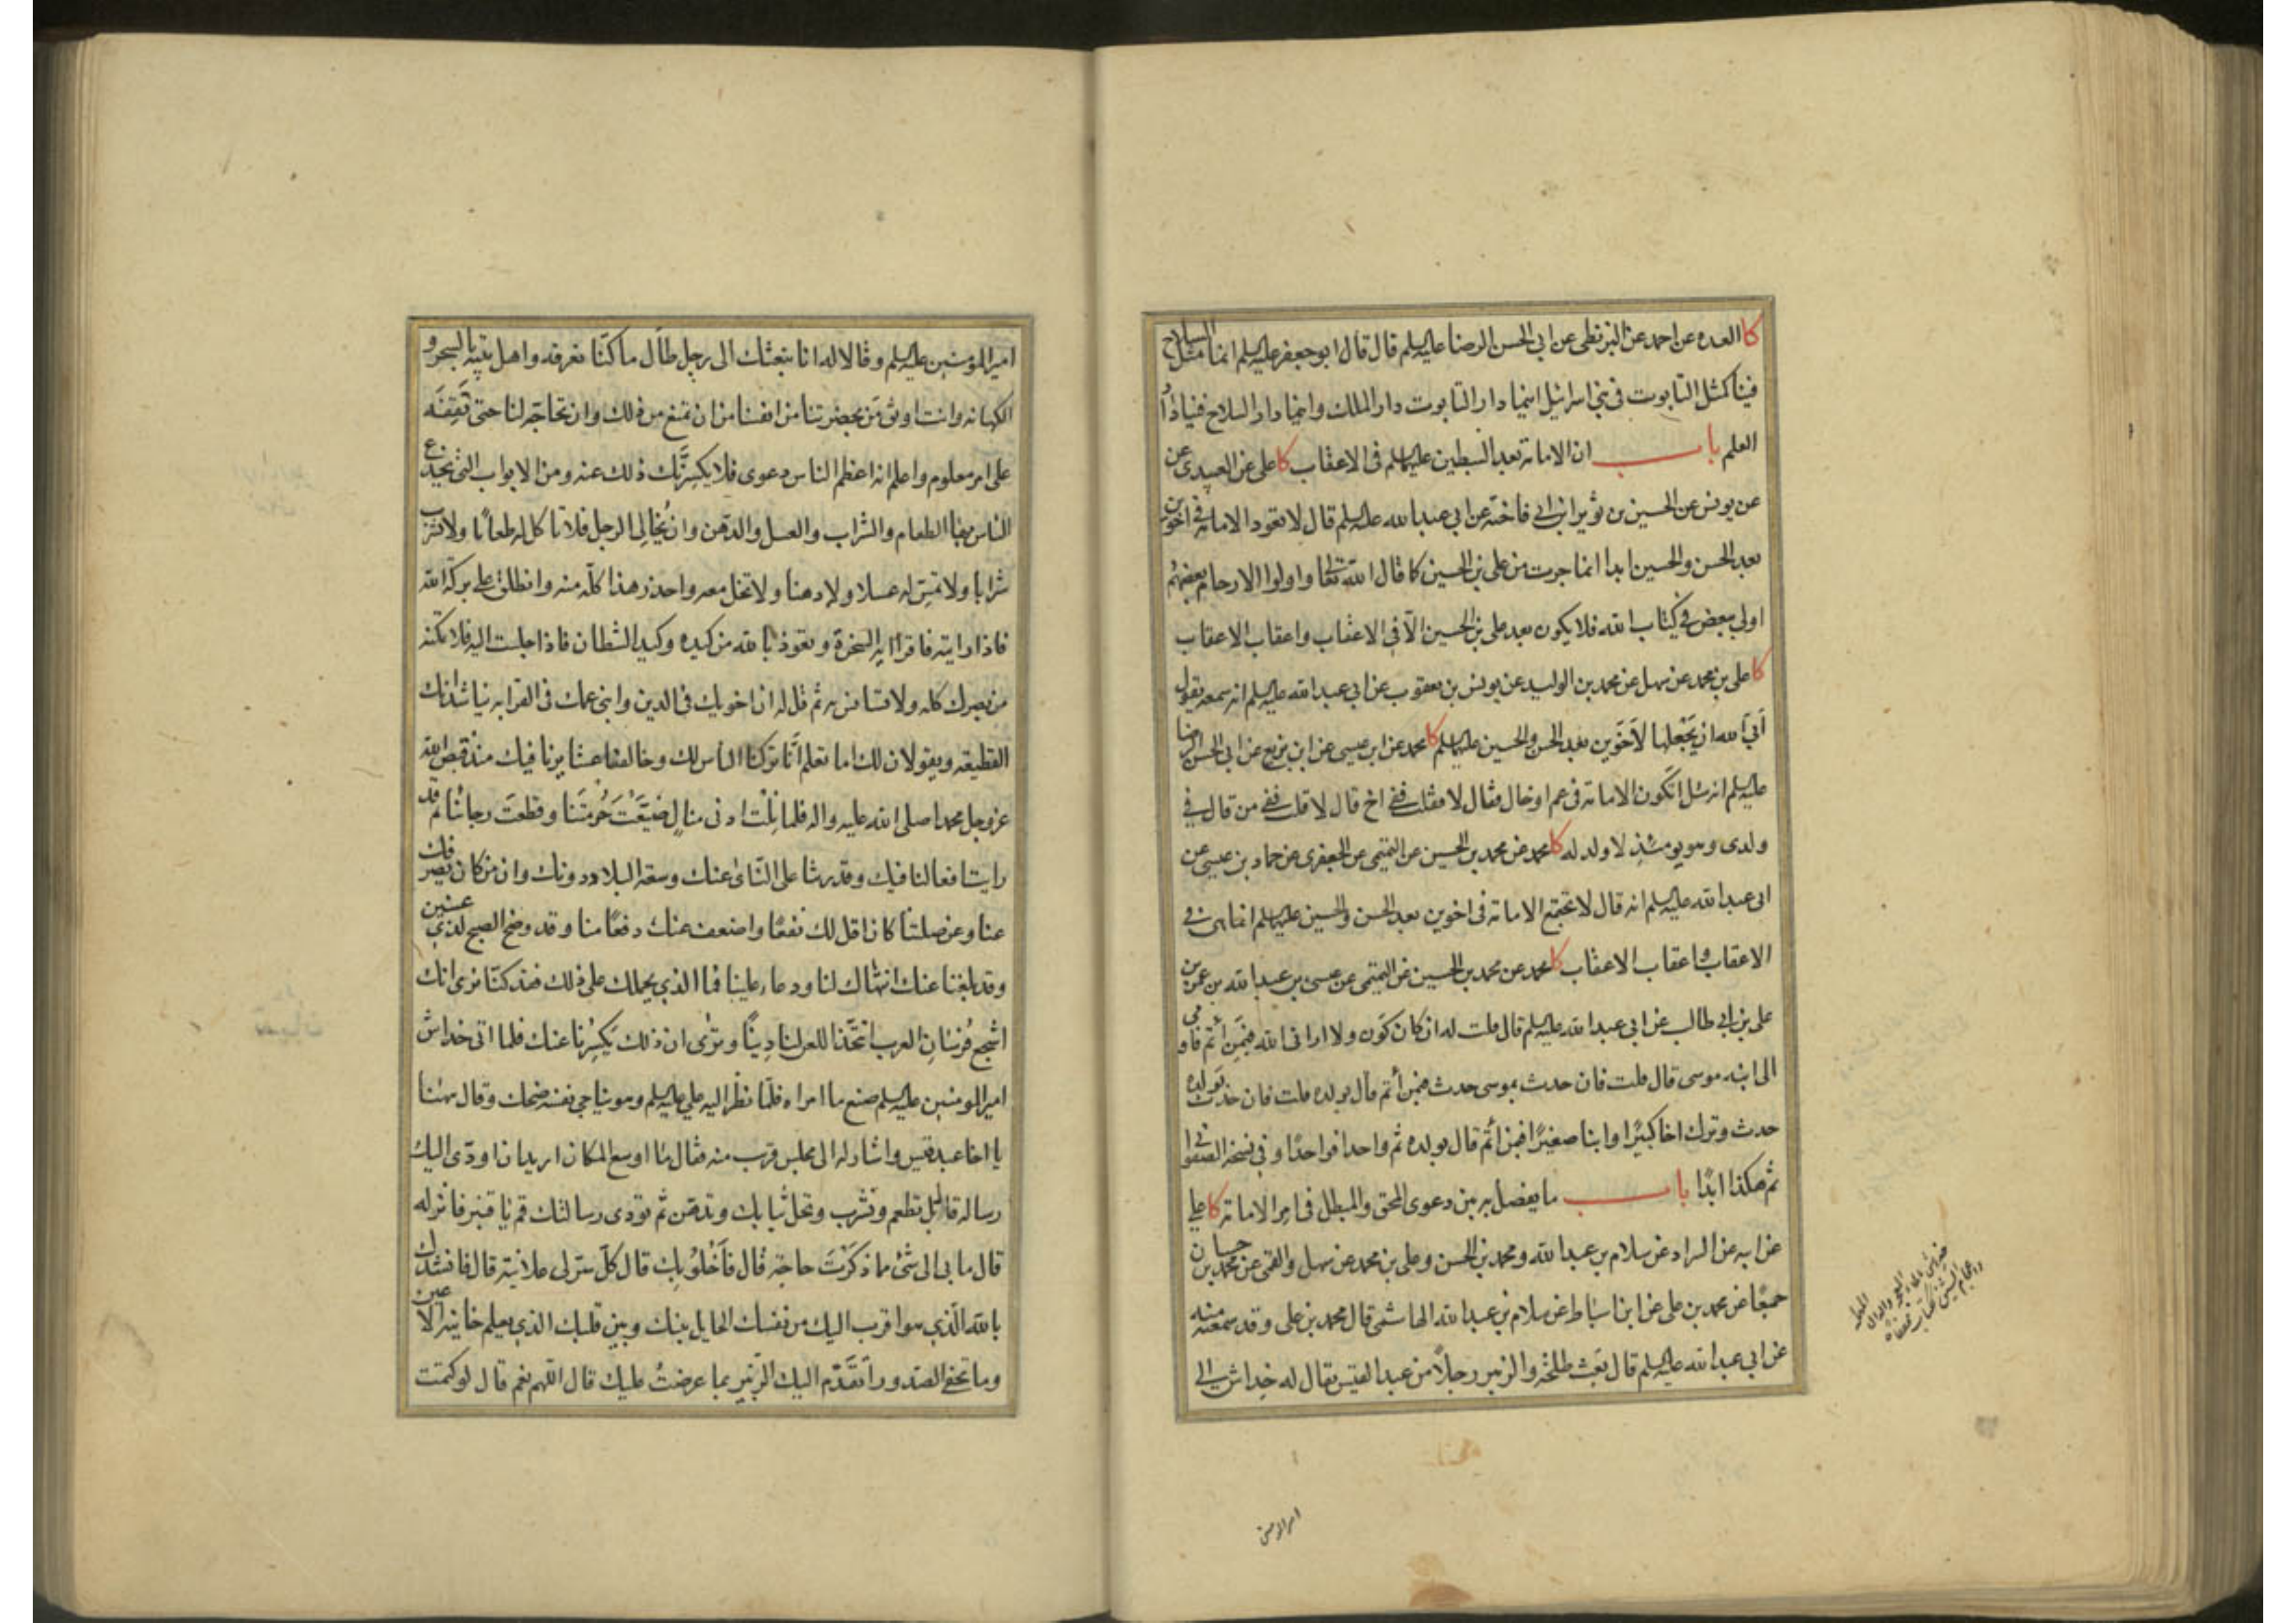 كا العده عن احمد عن البزنطى عن ابى الحسن الرضا عليه السلم قال قال ابو جعفر عليه السلم انما مثل السلاح
فينا كمثل التابوت فى بنى اسرائيل اينما دار التابوت دار الملك واينما دار السلاح فينا دار
العلم باب ان الامامة بعد السبطين عليهما السلم فى الاعقاب كا على عن العبيدى عن
عن يونس عن الحسين بن ثوير ابن ابى فاخته عن ابى عبد الله عليه السلم قال لا تعود الامامة فى اخوين
بعد الحسن والحسين ابدا انما جرت من على بن الحسين كا قال الله تعالى واولوا الارحام بعضهم
اولى ببعض فى كتاب الله فلا يكون بعد على بن الحسين الّا فى الاعقاب واعقاب الاعقاب
كا على بن محمد عن سهل عن محمد بن الوليد عن يونس بن يعقوب عن ابى عبد الله عليه السلم انه سمعه يقول
اَبَى الله ان يَجْعَلها لاَخَوَين بعد الحسن والحسين عليهما السلم كا محمد عن ابن عيسى عن ابن بزيع عن ابى الحسن الرضا
عليه السلم انه سئل اتكون الامامة فى عم او خال فقال لا فقلت ففى اخ قال لا قلت ففى من قال فى
ولدى وهو يومئذ لا ولد له كا محمد عن محمد بن الحسين عن التميمى عن الجعفرى عن حماد بن عيسى عن
ابى عبد الله عليه السلم انه قال لا تجتمع الامامة فى اخوين بعد الحسن والحسين عليهما السلم انما هى فى
الاعقاب واعقاب الاعقاب كا محمد عن محمد بن الحسين عن التميمى عن عيسى بن عبد الله بن عمر بن
على بن ابى طالب عن ابى عبد الله عليه السلم قال قلت له ان كان كَون ولا ارانى الله فبمن ائتم فاومى
الى ابنه موسى قال قلت فان حدث بموسى حدث فبمن أئتم قال بولده قلت فان حدث بولده
حدث وترك اخا كبيرًا وابنا صغيرًا فبمن أئتم قال بولده ثم واحدا فواحدًا وفى نسخة الصفوانى
ثم هكذا ابدًا باب ما يفصل به بين دعوى المحق والمبطل فى امر الامامة كا على
عن ابيه عن السراد عن سلام بن عبد الله ومحمد بن الحسن وعلى بن محمد عن سهل والقمى عن محمد بن حسان
جميعًا عن محمد بن على عن ابن اسباط عن سلام بن عبد الله الهاشمى قال محمد بن على وقد سمعته منه
عن ابى عبد الله عليه السلم قال بَعث طلحة والزبير رجلاً من عبد القيس يقال له خِداش الى
امير المؤمنين
امير المؤمنين عليه السلم وقالا له انا نبعثك الى رجل طال ما كنّا نعرفه واهل بيته بالسحر و
الكهانه وانت اوثق مَن بحضرتنا من انفسنا من ان تمتنع من ذلك وان تحاجّه لنا حتى تَقِفَه
على امر معلوم واعلم انه اعظم الناس دعوى فلا يكسِرَنَّك ذلك عنه ومن الابواب التى يخدع
الناس بها الطعام والشراب والعسل والدّهن وان يُخالِى الرجل فلا تاكل له طعامًا ولا تشرب
شرابا ولا تمسّ له عسلا ولا دهنا ولا تخل معه واحذر هذا كلّه منه وانطلق على بركة الله
فاذا رايته فاقرا اية السخرة وتعوذ بالله من كيده وكيد الشطان فاذا جلست اليه فلا تمكنه
من بصرك كله ولا تستانس به ثم قل له ان اخويك فى الدين وابنى عمك فى القرابه يناشدانك
القطيعة ويقولان لك اما تعلم انّا تركنا الناس لك وخالفنا عشايرنا فيك منذ قبض الله
عز وجل محمدا صلى الله عليه واله فلما نِلْتَ ادنى منالٍ ضَيَّعْتَ حُرمتَنا وقطعتَ رجائنا ثم قد
رايتَ افعالنا فيك وقدرتنا على النّأى عنك وسعة البلاد دونك وان من كان يصرفك
عنا وعن صلتنا كان اقل لك نفعًا واضعف عنك دفعًا منا وقد وضح الصبح لذى عينين
وقد بلغنا عنك انتهاك لنا ودعاء علينا فما الذى يحملك على ذلك فقد كنّا نرى انك
اشجع فُرْسَانِ العرب اتتّخذ اللعن لنا دينًا وترى ان ذلك يَكسِرُنا عنك فلما اتى خداش
امير المومنين عليه السلم صنع ما امراه فلمّا نظر اليه على عليه السلم وهو يناجى نفسه ضحك وقال ههنا
يا اخا عبد قيس واشار له الى مجلس قرب منه فقال ما اوسع المكان اريد ان اودّى اليك
رسالة قال بل تطعم وتشرب وتحل ثيابك وتدهن ثم تودى رسالتك قم يا قنبر فانزله
قال ما بى الى شىْ مما ذكرْتَ حاجة قال فأَخْلُو بك قال كلّ سرّ لى علانية قال فانشدك
بالله الّذى هو اقرب اليك من نفسك الحايل بينك وبين قلبك الذى يعلم خاينة الاعين
وما تخفى الصدور أتقدّم اليك الزّبير بما عرضتُ عليك قال اللهم نعم قال لو كتمت